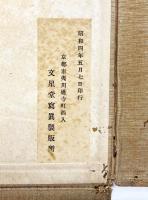 昭和四年五月七日印行
京都市夷川通寺町西入
文星堂寫眞製版所